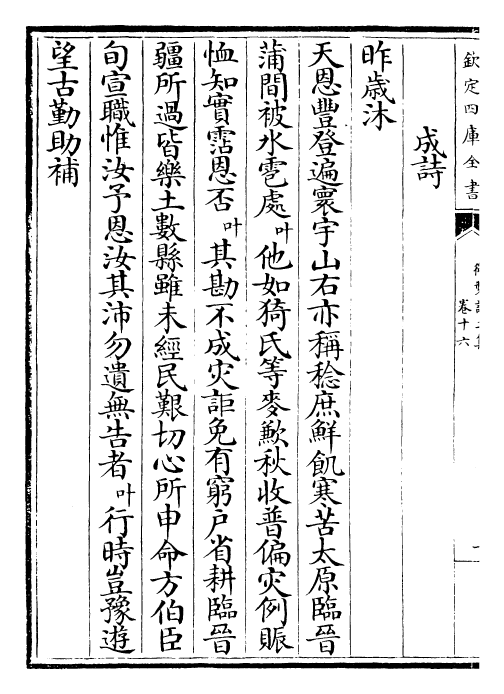 欽定四庫全書
卷十六
成詩
昨歲沐
天恩豐登遍寰宇山右亦稱稔庶鮮飢寒苦太原臨晉
蒲間被水雹處叶他如猗氏等麥歉秋收普偏灾例賑
恤知實霑恩否叶其勘不成灾詎免有窮戶省耕臨晉
疆所過皆樂土數縣雖未經民艱切心所申命方伯臣
旬宣職惟汝予恩汝其沛勿遺無告者叶行時豈豫遊
望古勤助補